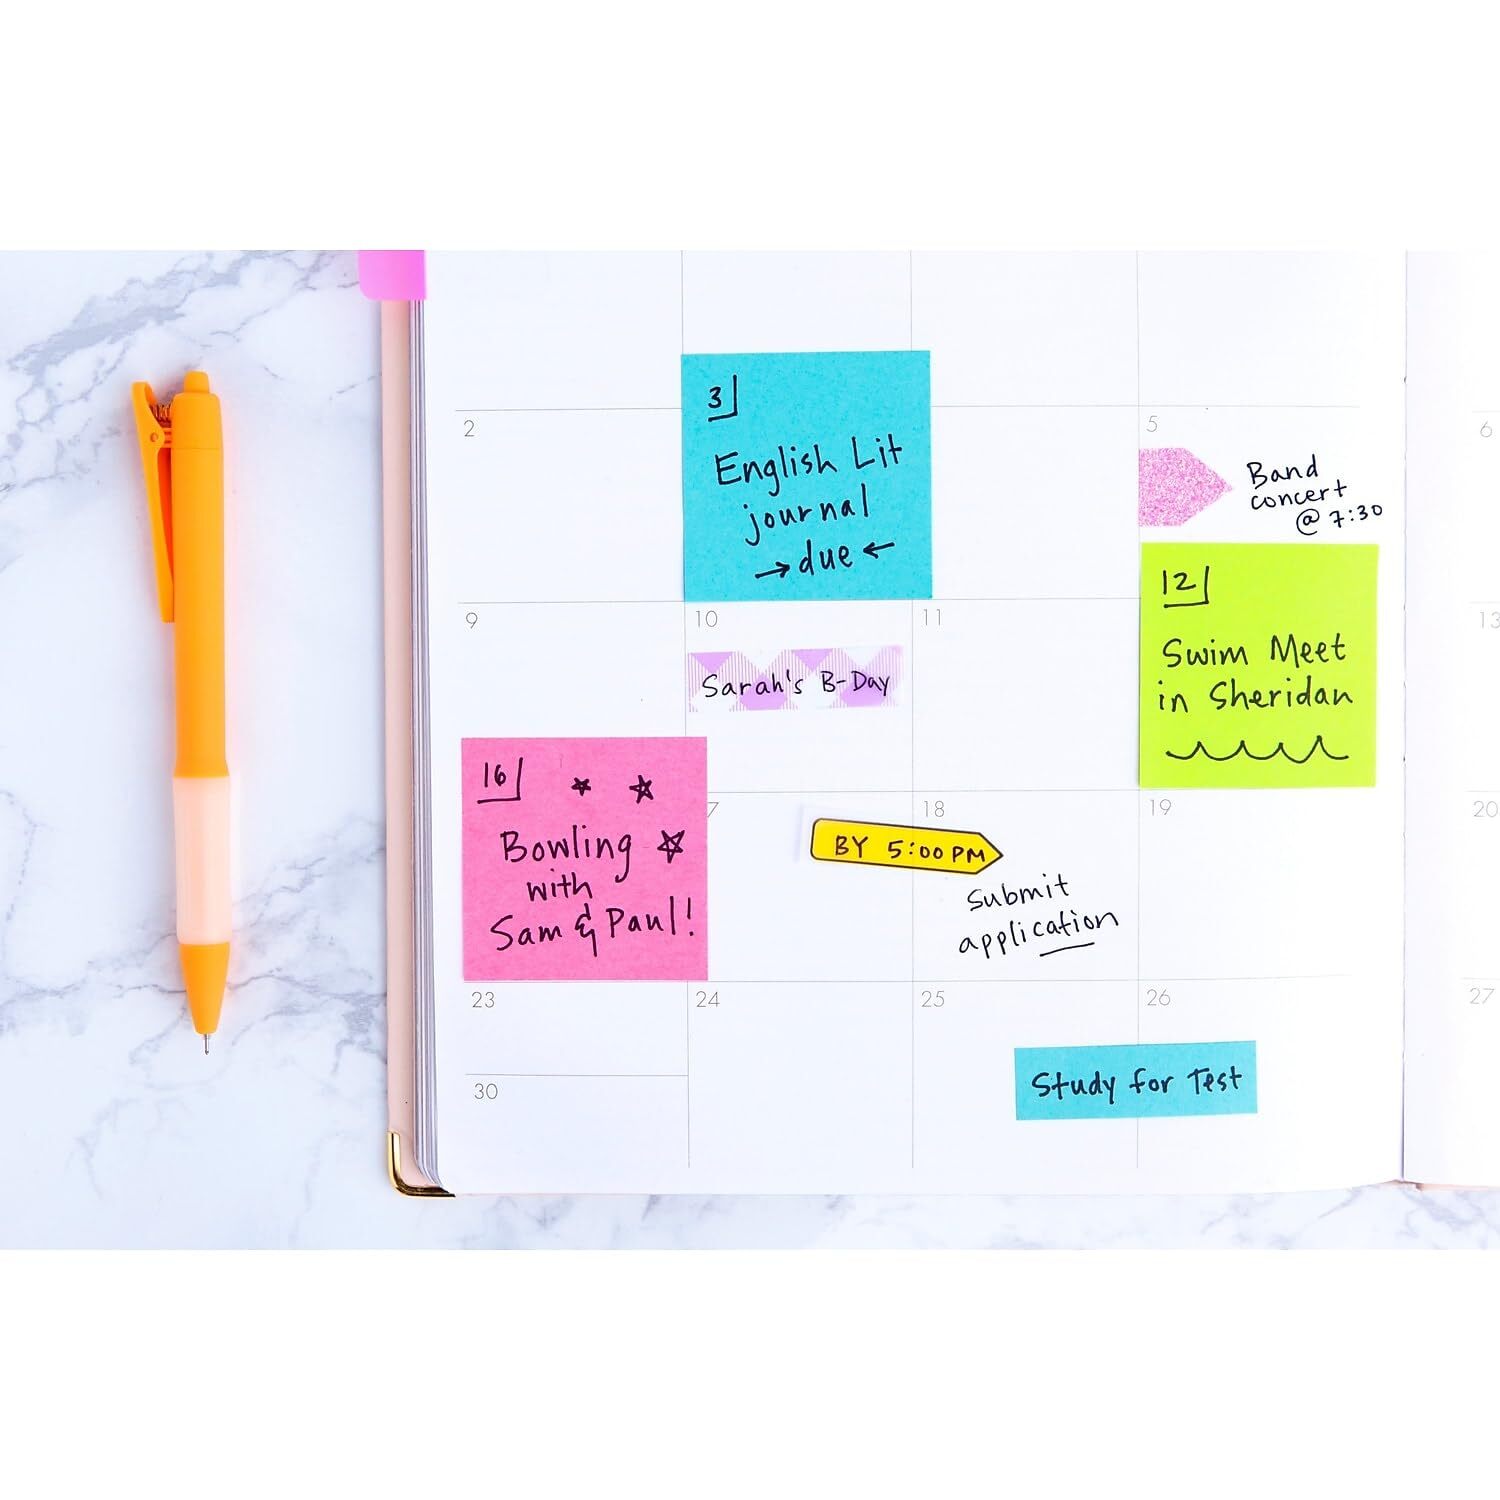 3
English Lit
journal
→ due ←
2
5
6
Band
concert
@ 7:30
12
Swim Meet
in Sheridan
9
10
11
13
Sarah's B-Day
16
Bowling
with
Sam & Paul!
7
18
19
20
BY 5:00 PM
Submit
application
23
24
25
26
27
Study for Test
30